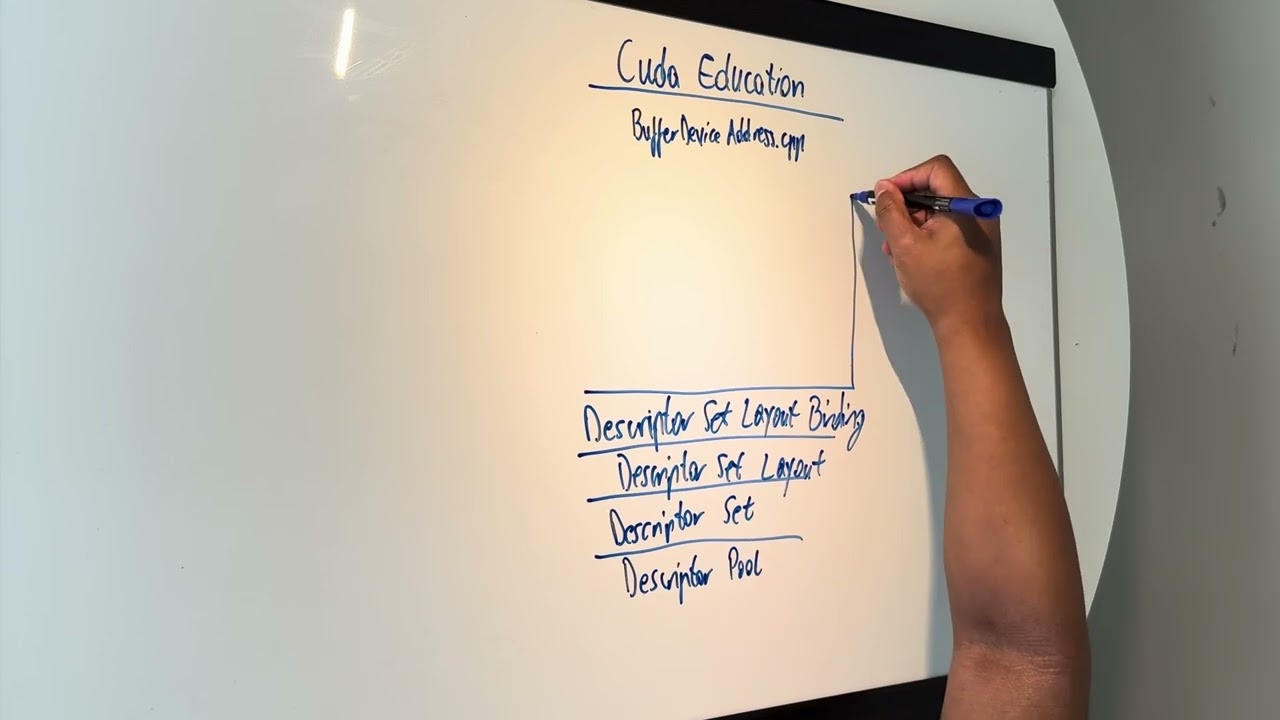 Cuda Education
BufferDeviceAddress.cpp
Descriptor Set Layout Binding
Descriptor Set Layout
Descriptor Set
Descriptor Pool